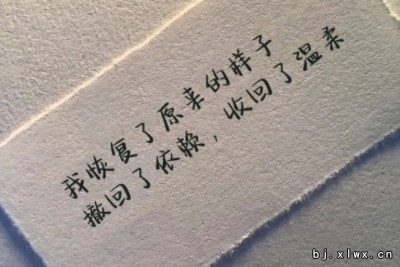 我恢复了原来的样子
撤回了依赖，收回了温柔
bj.xlwx.cn